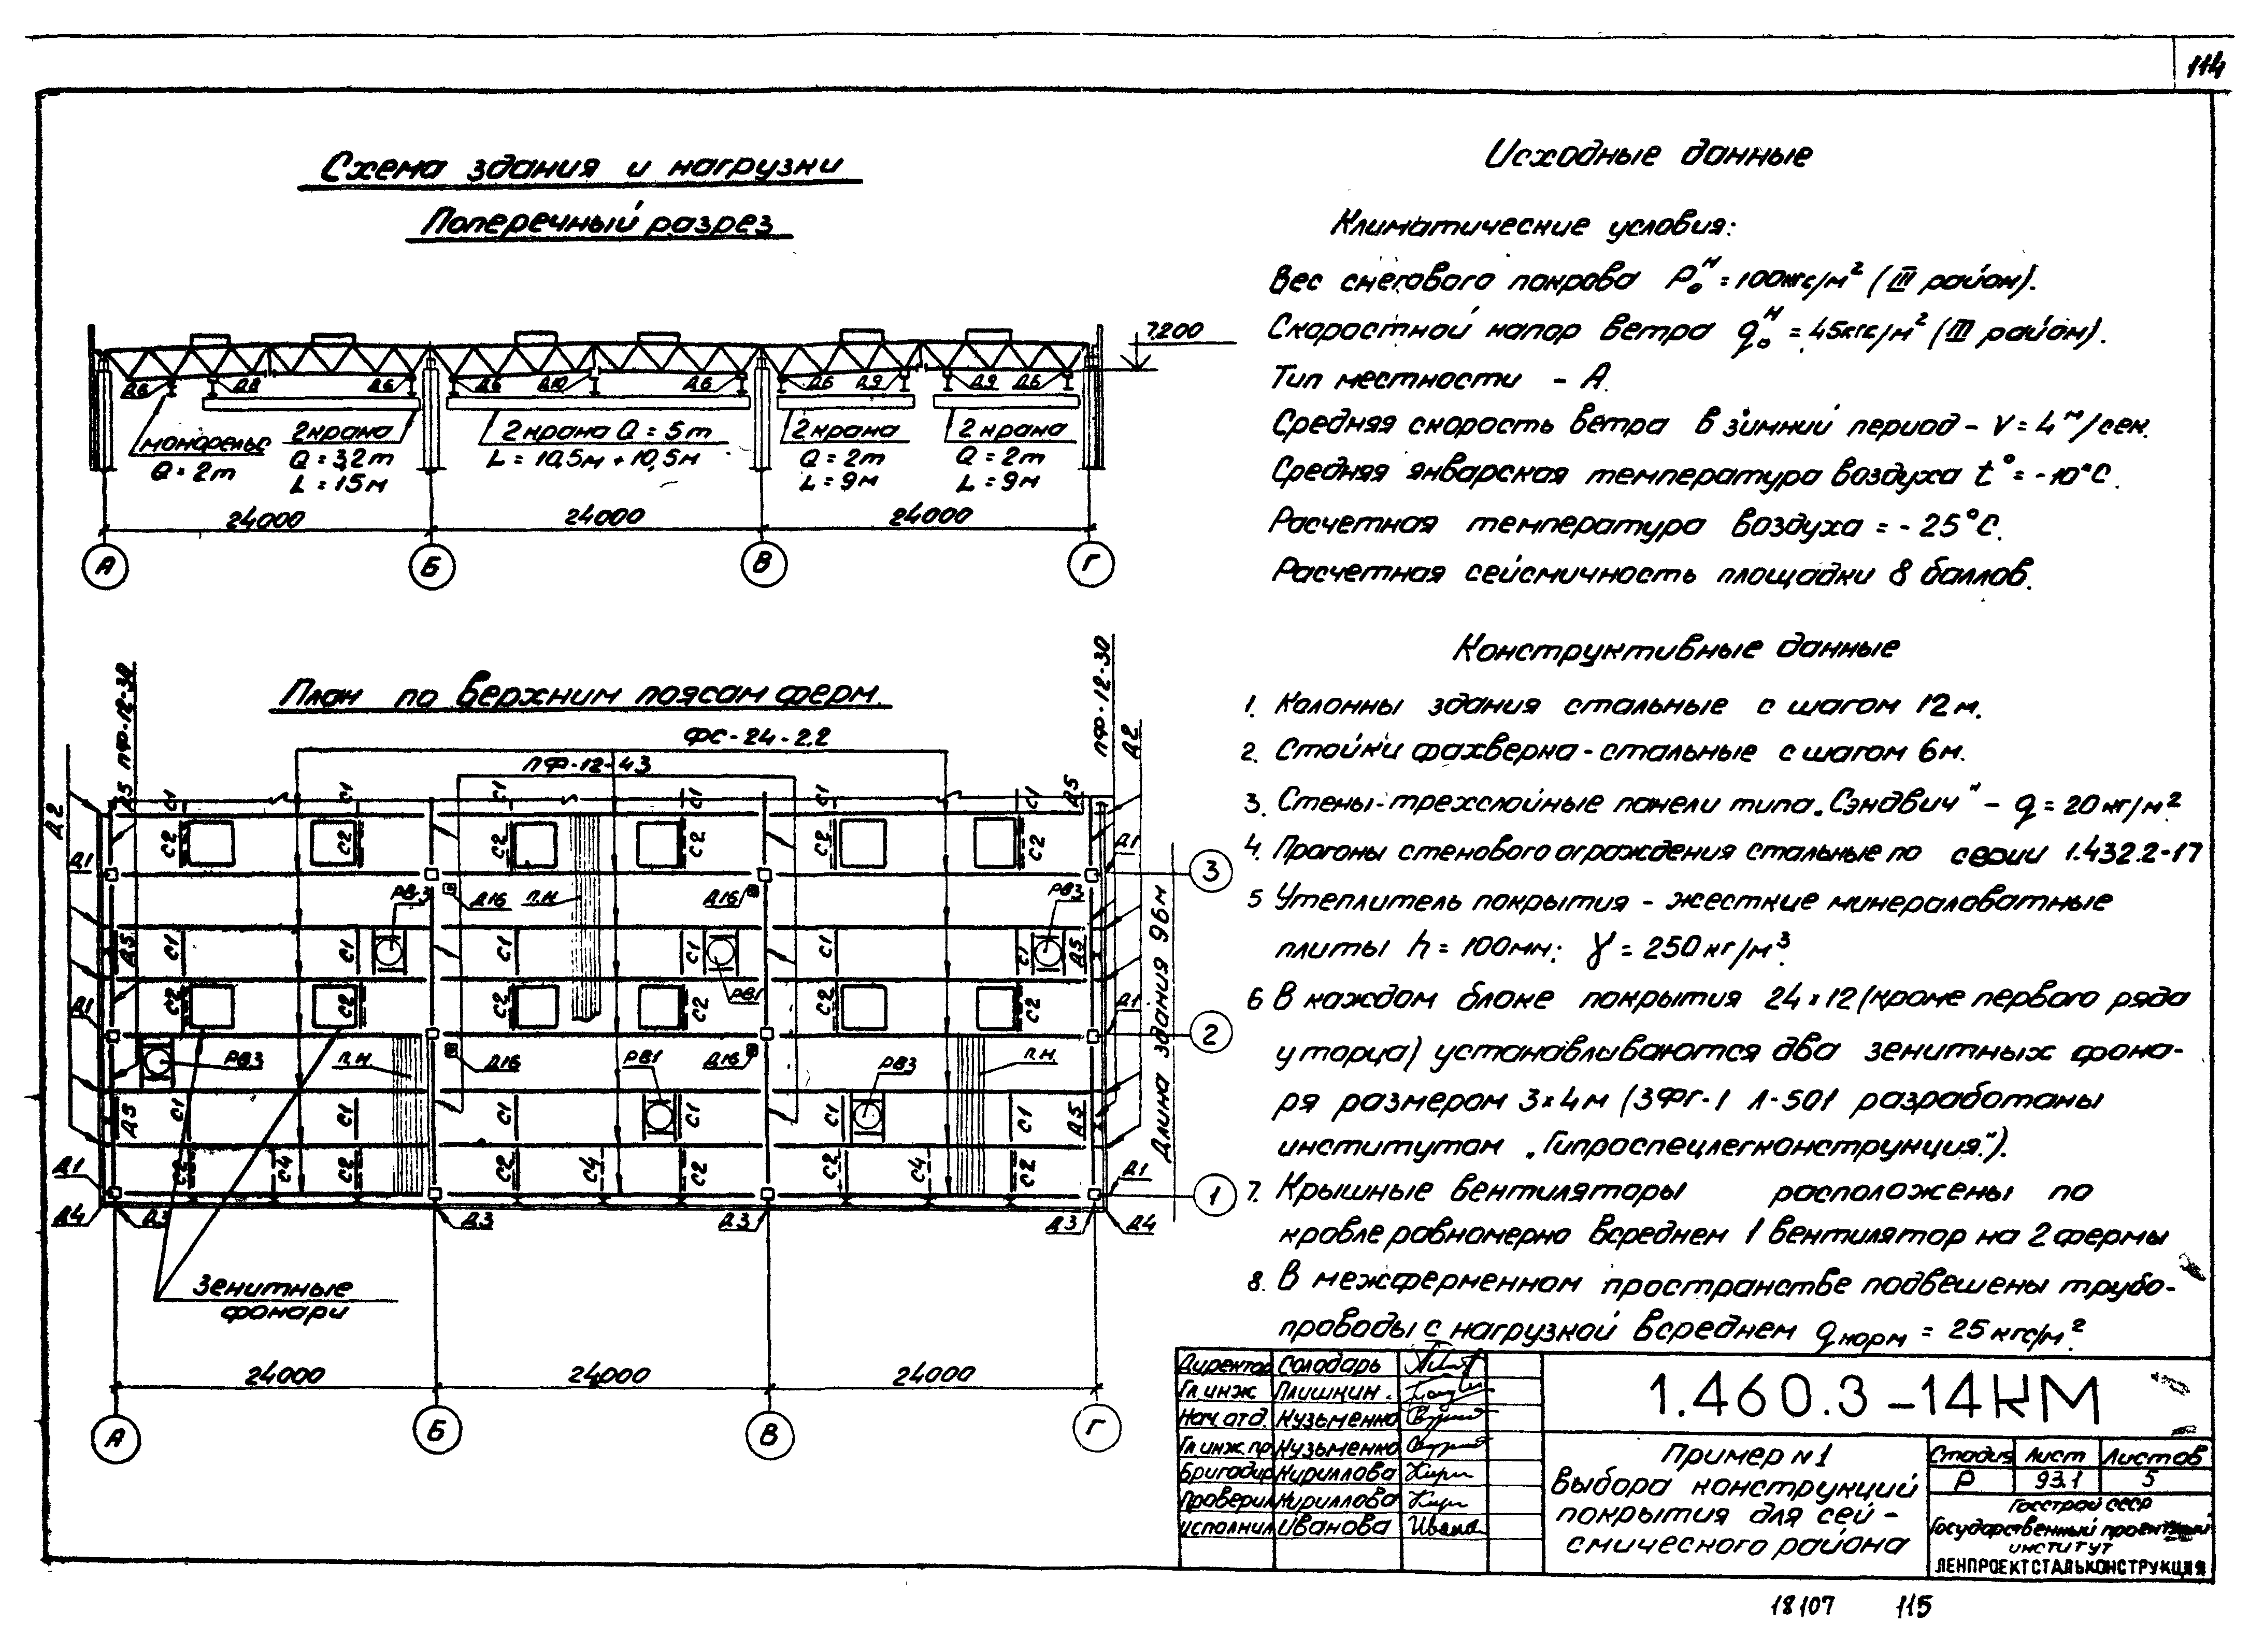 114
Схема здания и нагрузки
Поперечный разрез
7.200
Д6 Д8 Д6 Д6 Д10 Д6 Д6 Д9 Д9 Д6
монорельс
Q = 2т
2 крана
Q = 3,2т
L = 15м
2 крана Q = 5т
L = 10,5м + 10,5м
2 крана
Q = 2т
L = 9м
2 крана
Q = 2т
L = 9м
24000 24000 24000
А Б В Г
План по верхним поясам ферм.
ПФ-12-30
ПФ-12-30
Д2
Д2
ФС-24-2.2
ПФ-12-43
Д5 С1 С1 С1 С1 С1 С1 Д5
С2 С2 С2 С2 С2 С2
Д1 Д1
3
РВ3 Д16 П.Н Д16 РВ3
Д5 С1 С1 С1 С1 С1 С1 Д5
РВ1
С2 С2 С2 С2 С2 С2
Д1 Д1
2
РВ3 П.Н Д16 РВ1 Д16 РВ3 П.Н
Д5 С1 С1 С1 С1 С1 С1 Д5
Длина здания 96м
С2 С4 С2 С2 С4 С2 С2 С4 С2
Д1 Д1
1
Д4 Д3 Д3 Д3 Д3 Д4
Зенитные
фонари
24000 24000 24000
А Б В Г
Исходные данные
Климатические условия:
Вес снегового покрова Р₀ᴴ = 100кгс/м² (III район).
Скоростной напор ветра q₀ᴴ = 45кгс/м² (III район).
Тип местности - А.
Средняя скорость ветра в зимний период - V = 4 м/сек.
Средняя январская температура воздуха t° = -10°С.
Расчетная температура воздуха = - 25°С.
Расчетная сейсмичность площадки 8 баллов.
Конструктивные данные
1. Колонны здания стальные с шагом 12м.
2. Стойки фахверка - стальные с шагом 6м.
3. Стены - трехслойные панели типа „Сэндвич" - q = 20кг/м²
4. Прогоны стенового ограждения стальные по серии 1.432.2-17
5 Утеплитель покрытия - жесткие минераловатные
плиты h = 100мм; γ = 250кг/м³.
6 В каждом блоке покрытия 24×12 (кроме первого ряда
у торца) устанавливаются два зенитных фона-
ря размером 3×4м (ЗФГ-1 Л-501 разработаны
институтом „Гипроспецлегконструкция").
7. Крышные вентиляторы расположены по
кровле равномерно всреднем 1 вентилятор на 2 фермы
8. В межферменном пространстве подвешены трубо-
проводы с нагрузкой всреднем qнорм = 25кгс/м².
Директор Солодарь
Гл инж Плишкин
Нач. отд. Кузьменко
Гл.инж.пр. Кузьменко
Бригадир Кириллова
Проверил Кириллова
Исполнил Иванова
1.460.3-14КМ
Пример №1
выбора конструкций
покрытия для сей-
смического района
Стадия Лист Листов
Р 93.1 5
Госстрой СССР
Государственный проектный
институт
ЛЕНПРОЕКТСТАЛЬКОНСТРУКЦИЯ
18107 115